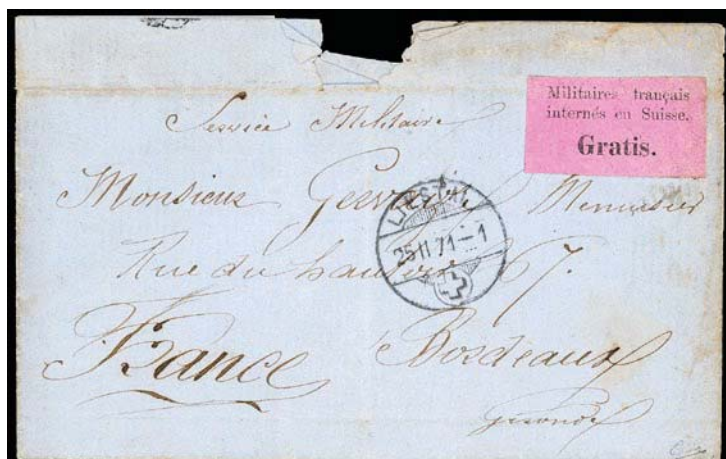 Militaires français
internés en Suisse.
Gratis.
Service Militaire
Monsieur Menuisier
LIESTAL
25 II 71-1
Rue du 67.
France Bordeaux
Gironde